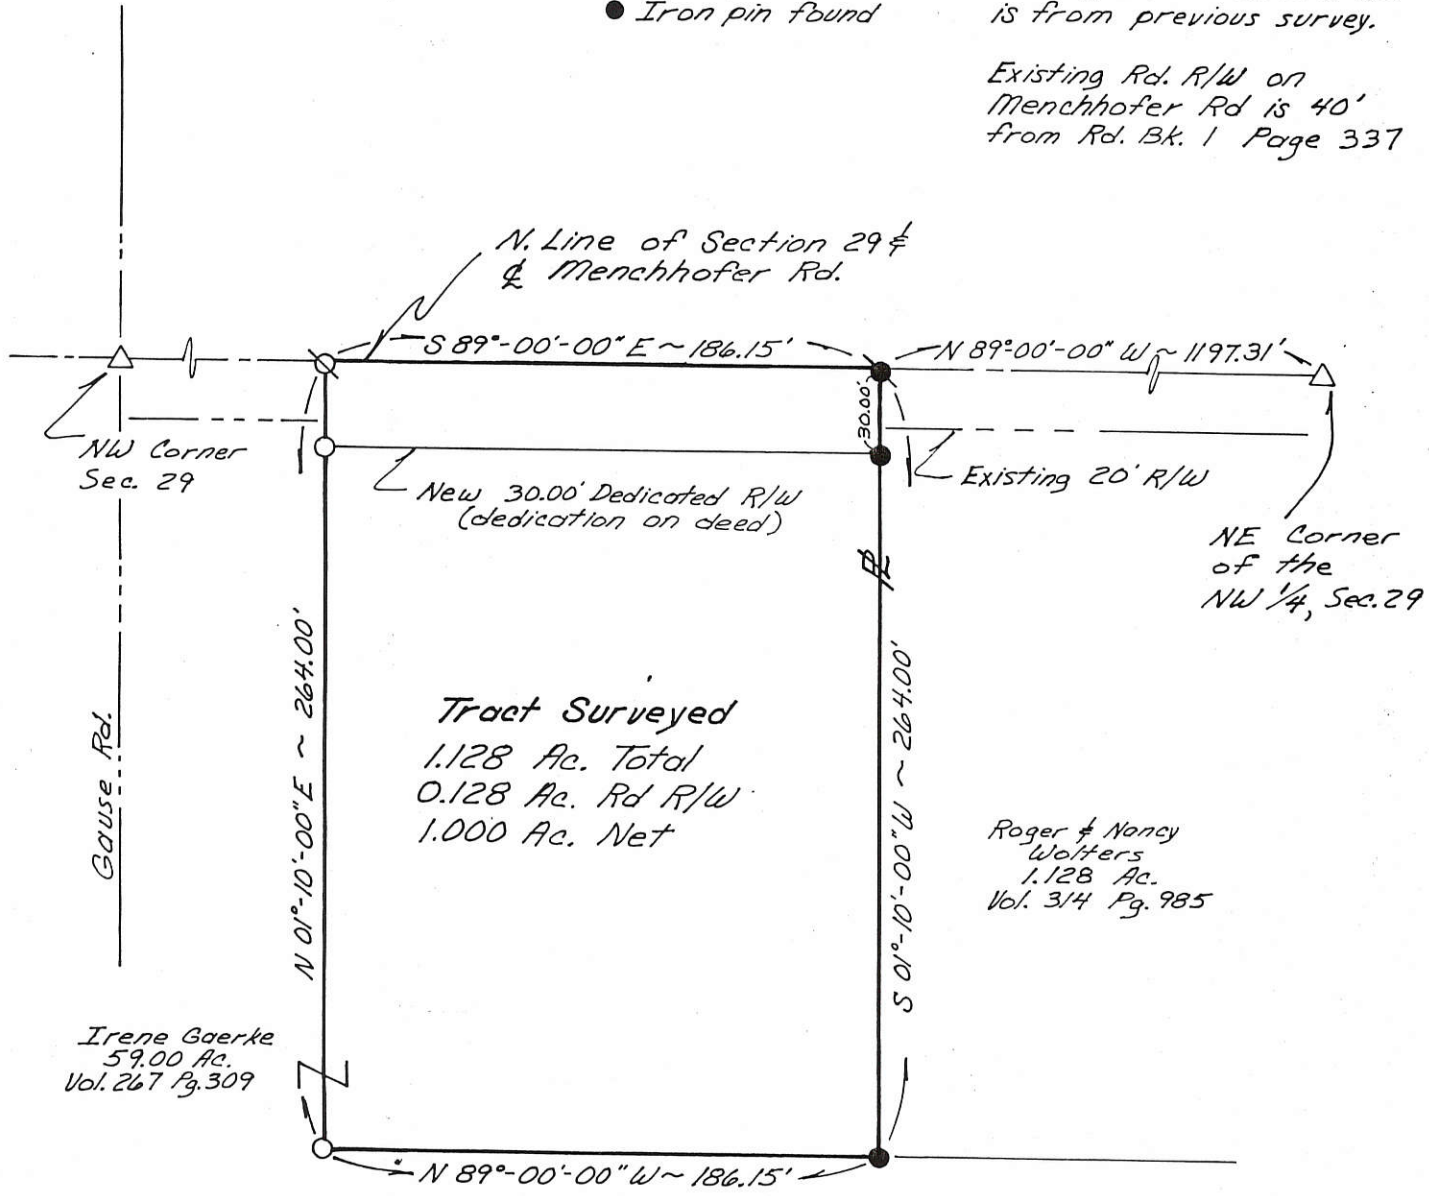 ● Iron pin found
is from previous survey.
Existing Rd. R/W on
Menchhofer Rd is 40'
from Rd. Bk. 1 Page 337
N. Line of Section 29 &
℄ Menchhofer Rd.
S 89°-00'-00" E ~ 186.15'
N 89°00'-00" W ~ 1197.31'
30.00'
NW Corner
Sec. 29
New 30.00' Dedicated R/W
(dedication on deed)
Existing 20' R/W
NE Corner
of the
NW 1/4, Sec. 29
PL
Gause Rd.
N 01°-10'-00" E ~ 264.00'
Tract Surveyed
1.128 Ac. Total
0.128 Ac. Rd R/W
1.000 Ac. Net
S 01°-10'-00" W ~ 264.00'
Roger & Nancy
Wolters
1.128 Ac.
Vol. 314 Pg. 985
Irene Gaerke
59.00 Ac.
Vol. 267 Pg. 309
N 89°-00'-00" W ~ 186.15'